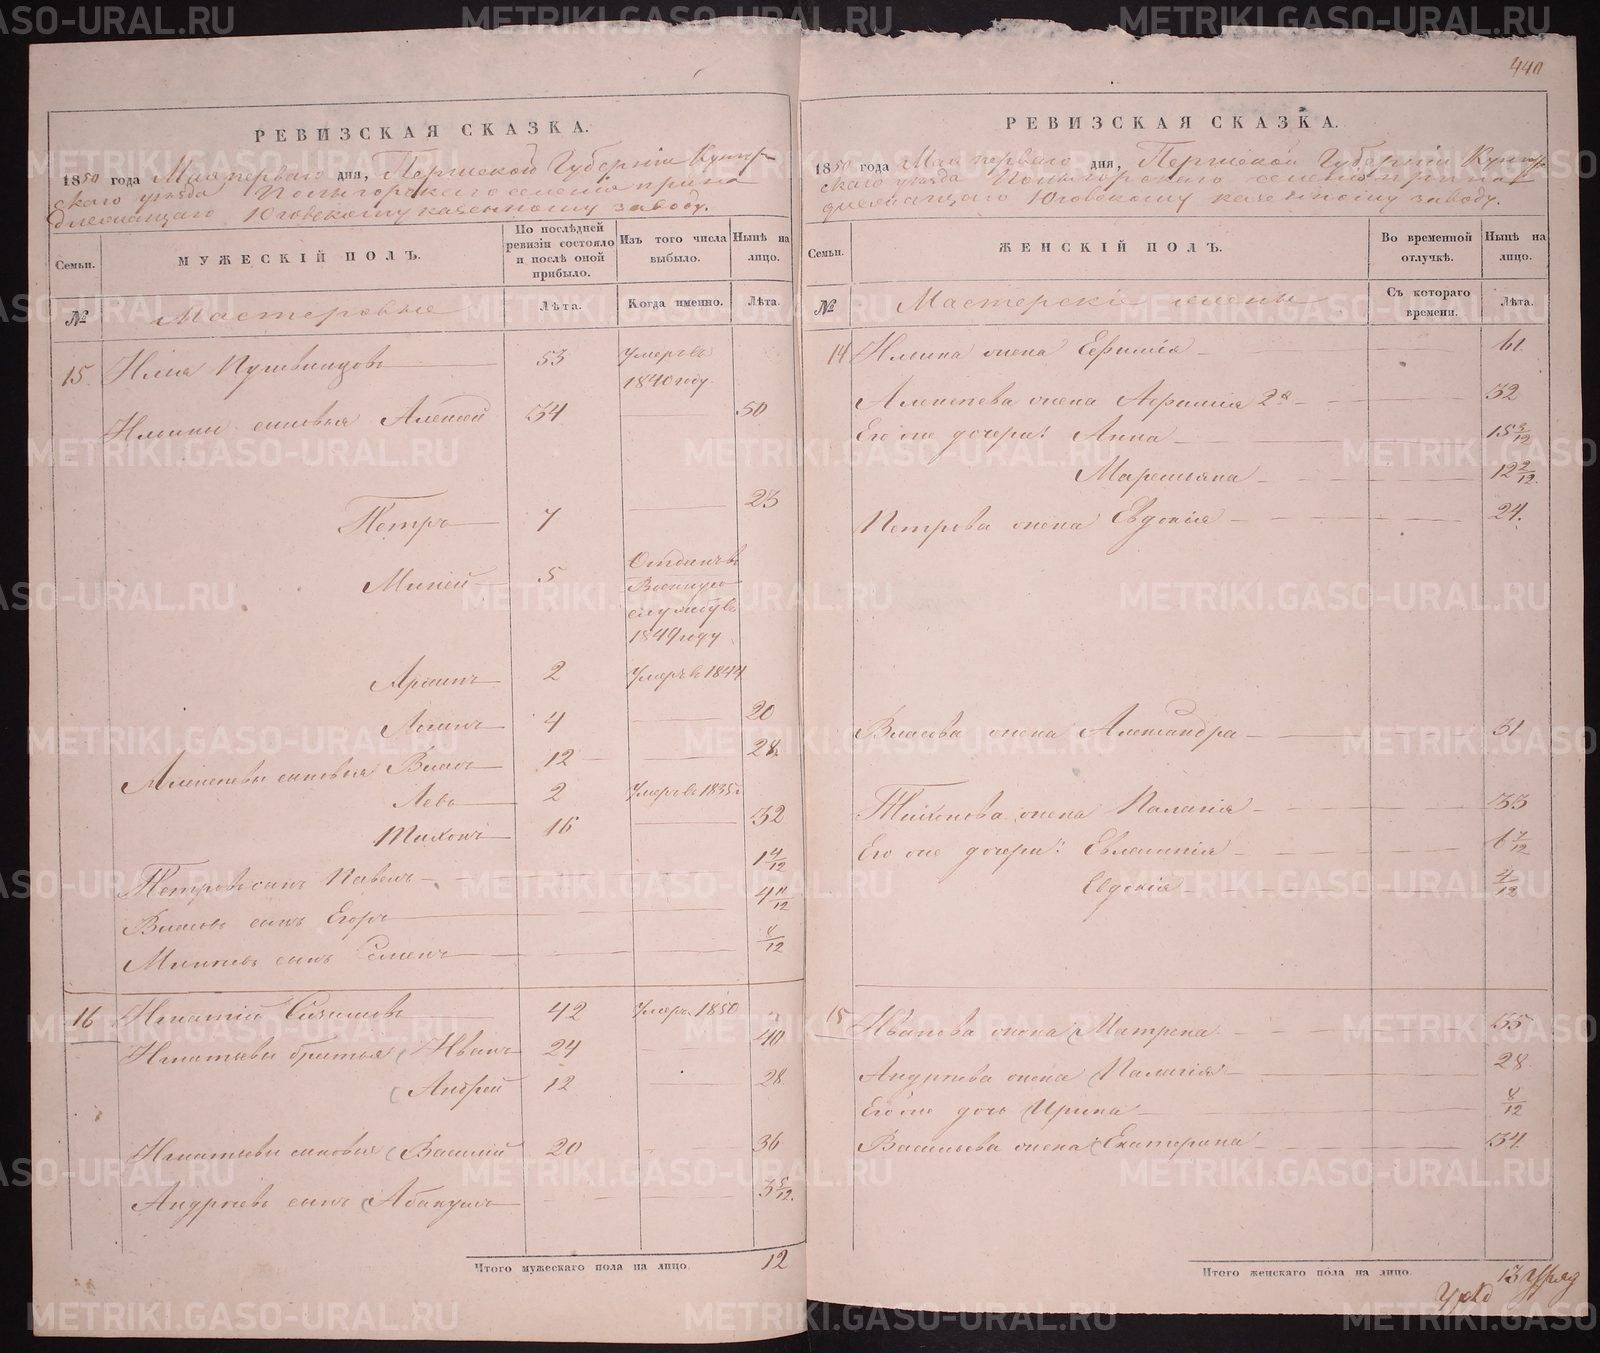 440
РЕВИЗСКАЯ СКАЗКА.
1850 года Мая перваго дня, Пермской Губерніи Кунгур-
скаго уѣзда селенія прина
длежащаго Юговскому казенному заводу.
Семьи.
МУЖЕСКІЙ ПОЛЪ.
По послѣдней ревизіи состояло и послѣ оной прибыло.
Изъ того числа выбыло.
Нынѣ на лицо.
№
Мастеровые
Лѣта.
Когда именно.
Лѣта.
15 Илья 53 Умеръ въ
1840 году.
Ильины сыновья Алексѣй 34 50
Петръ 7 23
Миней 5 Отданъ въ
Военную
службу въ
1849 году
2 Умеръ въ 1844
Логинъ 4 20
Алексѣевы сыновья Власъ 12 28
Левъ 2 Умеръ въ 1835 г
Тихонъ 16 32
Петровъ сынъ Павелъ 1 4/12
Власовъ сынъ Егоръ 4 11/12
сынъ Семенъ /12
16 Игнатій 42 Умеръ 1850
Игнатьевы братья Иванъ 24 40
Андрей 12 28
Игнатьевы сыновья Василій 20 36
Андреевъ сынъ Абакумъ 3 5/12
Итого мужескаго пола на лицо. 12
РЕВИЗСКАЯ СКАЗКА.
1850 года Мая перваго дня, Пермской Губерніи Кунгур-
скаго уѣзда селенія прина
длежащаго Юговскому казенному заводу.
Семьи.
ЖЕНСКІЙ ПОЛЪ.
Во временной отлучкѣ.
Нынѣ на лицо.
№
Мастерскіе жены
Съ котораго времени.
Лѣта.
14 Ильина жена Ефимія 61
Алексѣева жена Афимія 2я 32
Его же дочери: Анна 15 3/12
Маремьяна 12 2/12
Петрова жена Евдокія 24.
Власова жена Александра 31
Тихонова жена Палагія 33
Его же дочери: Евлампія 1 7/12
Евдокія 4/12
15 Иванова жена Матрена 55
Андреева жена Палагія 28
Его же дочь Ирина /12
Васильева жена Екатерина 34.
Итого женскаго пола на лицо. 13
METRIKI.GASO-URAL.RU